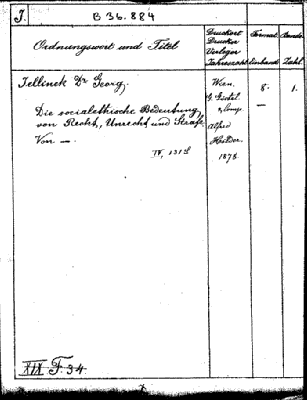 J.
B 36.884
Ordnungswort und Titel
Druckort
Drucker
Verleger
Jahreszahl
Format
Einband
Bände
Zahl
Jellinek Dr Georg.
Die socialethische Bedeutung
von Recht, Unrecht und Strafe
Von —.
IV, 131 S
Wien,
Alfred
Hölder.
1878.
8.
—
1.
XIX F. 34.